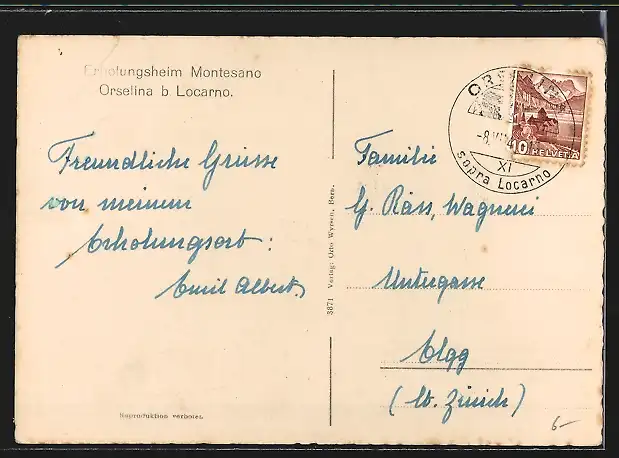 Erholungsheim Montesano
Orselina b. Locarno.
Freundliche Grüsse
von meinem
Erholungsort:
Emil Albert.
Reproduktion verboten.
3871 Verlag: Otto Wyrsch, Bern.
ORSELINA
-8.
XI
sopra Locarno
10 HELVETIA
Familie
G. Räss, Wagnerei
Untergasse
Elgg
(Ct. Zürich)
6-